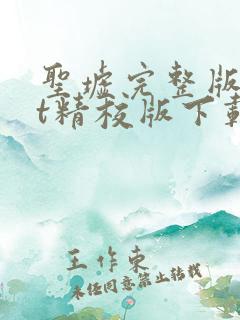 聖墟完整版
t精校版下載
王作東
未经同意禁止转载